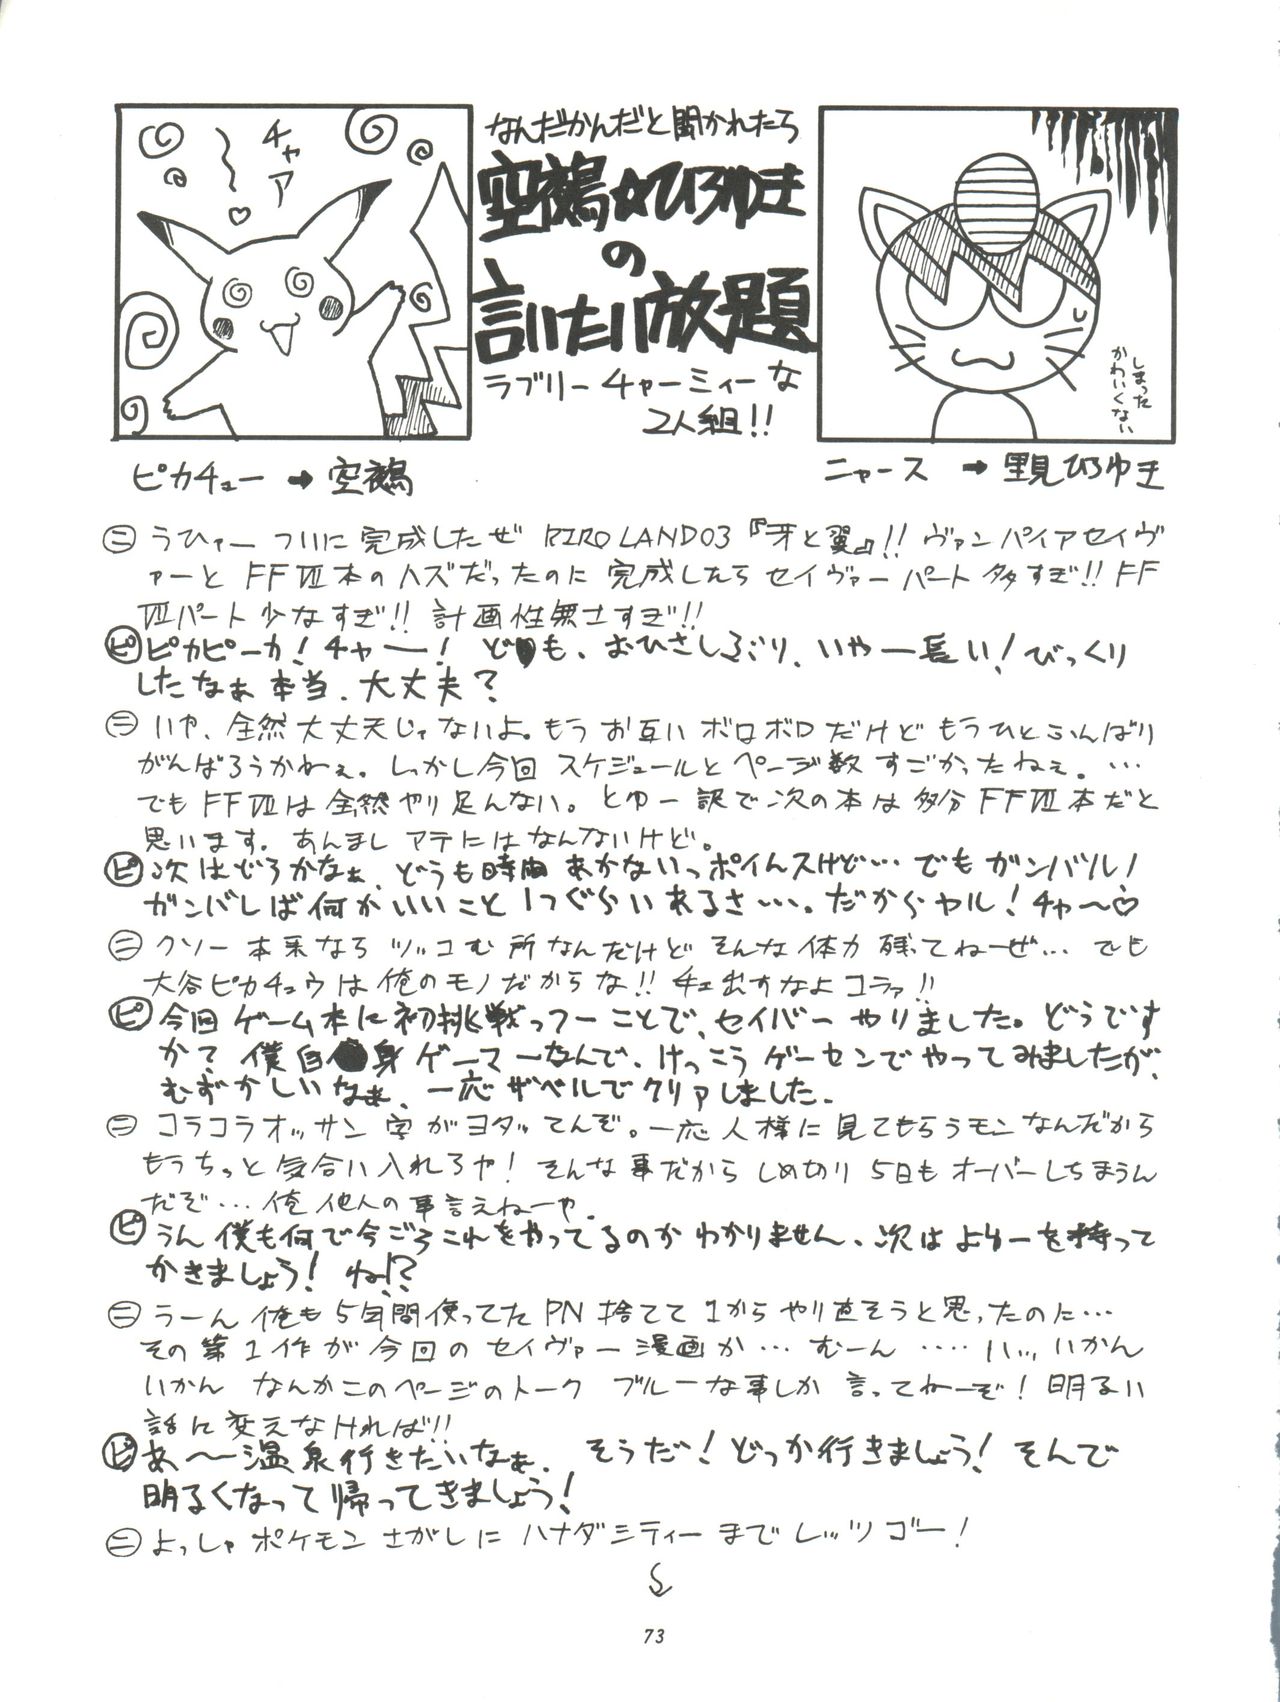 チャア〜♡
なんだかんだと聞かれたら
空鵺☆ひろゆき
の
言いたい放題
ラブリーチャーミィーな
2人組!!
しまった
かわいくない
ピカチュー→空鵺
ニャース→里見ひろゆき
㊁うひゃー ついに完成したぜ RIRO LAND03『牙と翼』!! ヴァンパイアセイヴ
ァーと FFⅦ本のハズだったのに 完成したら セイヴァーパート多すぎ!! FF
Ⅶパート少なすぎ!! 計画性無さすぎ!!
ピ ピカピーカ!チャー! ども、おひさしぶり、いやー長い!びっくり
したなぁ本当、大丈夫?
㊁いや、全然大丈夫じゃないよ。もうお互いボロボロだけど もうひとふんばり
がんばろうかねぇ。しっかし今回 スケジュールとページ数すごかったねぇ。…
でも FFⅦは全然やり足んない。とゆー訳で次の本は多分FFⅦ本だと
思います。あんましアテにはなんないけど。
ピ 次はどろかなぁ、どうも時間あかないっポイんスけど… でもガンバツルノ
ガンバレば何かいいこと1つぐらいあるさ…。だからヤル!チャ〜♡
㊁クソー本来なら ツッコむ所なんだけど そんな体力残ってねーぜ… でも
大谷ピカチュウは俺のモノだからな!!チェ出すなよコラァ!!
ピ 今回ゲーム本に初挑戦っつーことで、セイバーやりました。どうです
か?僕自身ゲーマーなんで、けっこうゲーセンでやってみましたが、
むずかしいなぁ、一応ザベルでクリアしました。
㊁コラコラオッサン字がヨタってんぞ。一応人様に見てもらうモンなんだから
もうちっと気合い入れろや!そんな事だから しめ切り5日もオーバーしちまうん
だぞ…俺他人の事言えねーや。
ピ うん僕も何で今ごろこれをやってるのかわかりません、次はよゆーを持って
かきましょう!ね!?
㊁うーん俺も5年間使ってたPN捨てて1からやり直そうと思ったのに…
その第1作が今回のセイヴァー漫画か…むーん…‥ハッ、いかん
いかん なんかこのページのトーク ブルーな事しか言ってねーぞ!明るい
話に変えなければ!!
ピ あ〜温泉行きたいなぁ、そうだ!どっか行きましょう!そんで
明るくなって帰ってきましょう!
㊁よっしゃポケモンさがしに ハナダシティーまでレッツゴー!
73